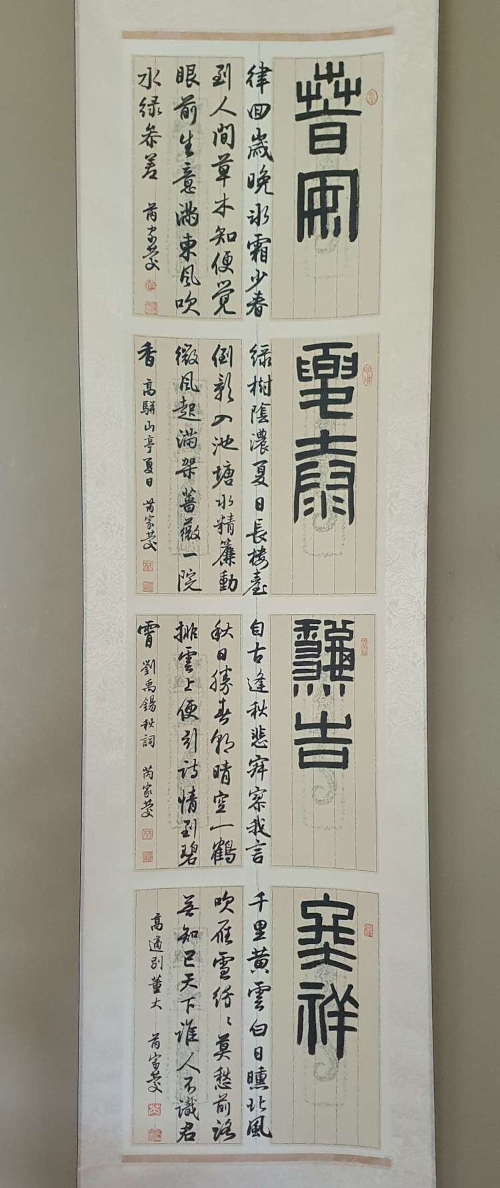 萅
律回歲晚冰霜少春
到人間草木知便觉
眼前生意滿東風吹
水绿参差 芮家
夏
绿樹陰濃夏日長楼臺
倒影入池塘水精簾動
微風起滿架薔薇一院
香 高駢山亭夏日 芮家
龝吉
自古逢秋悲寂寥我言
秋日勝春朝晴空一鶴
排雲上便引诗情到碧
霄 劉禹錫秋詞 芮家
冬祥
千里黄雲白日曛北風
吹雁雪纷々莫愁前路
無知己天下谁人不識君
高適别董大 芮家